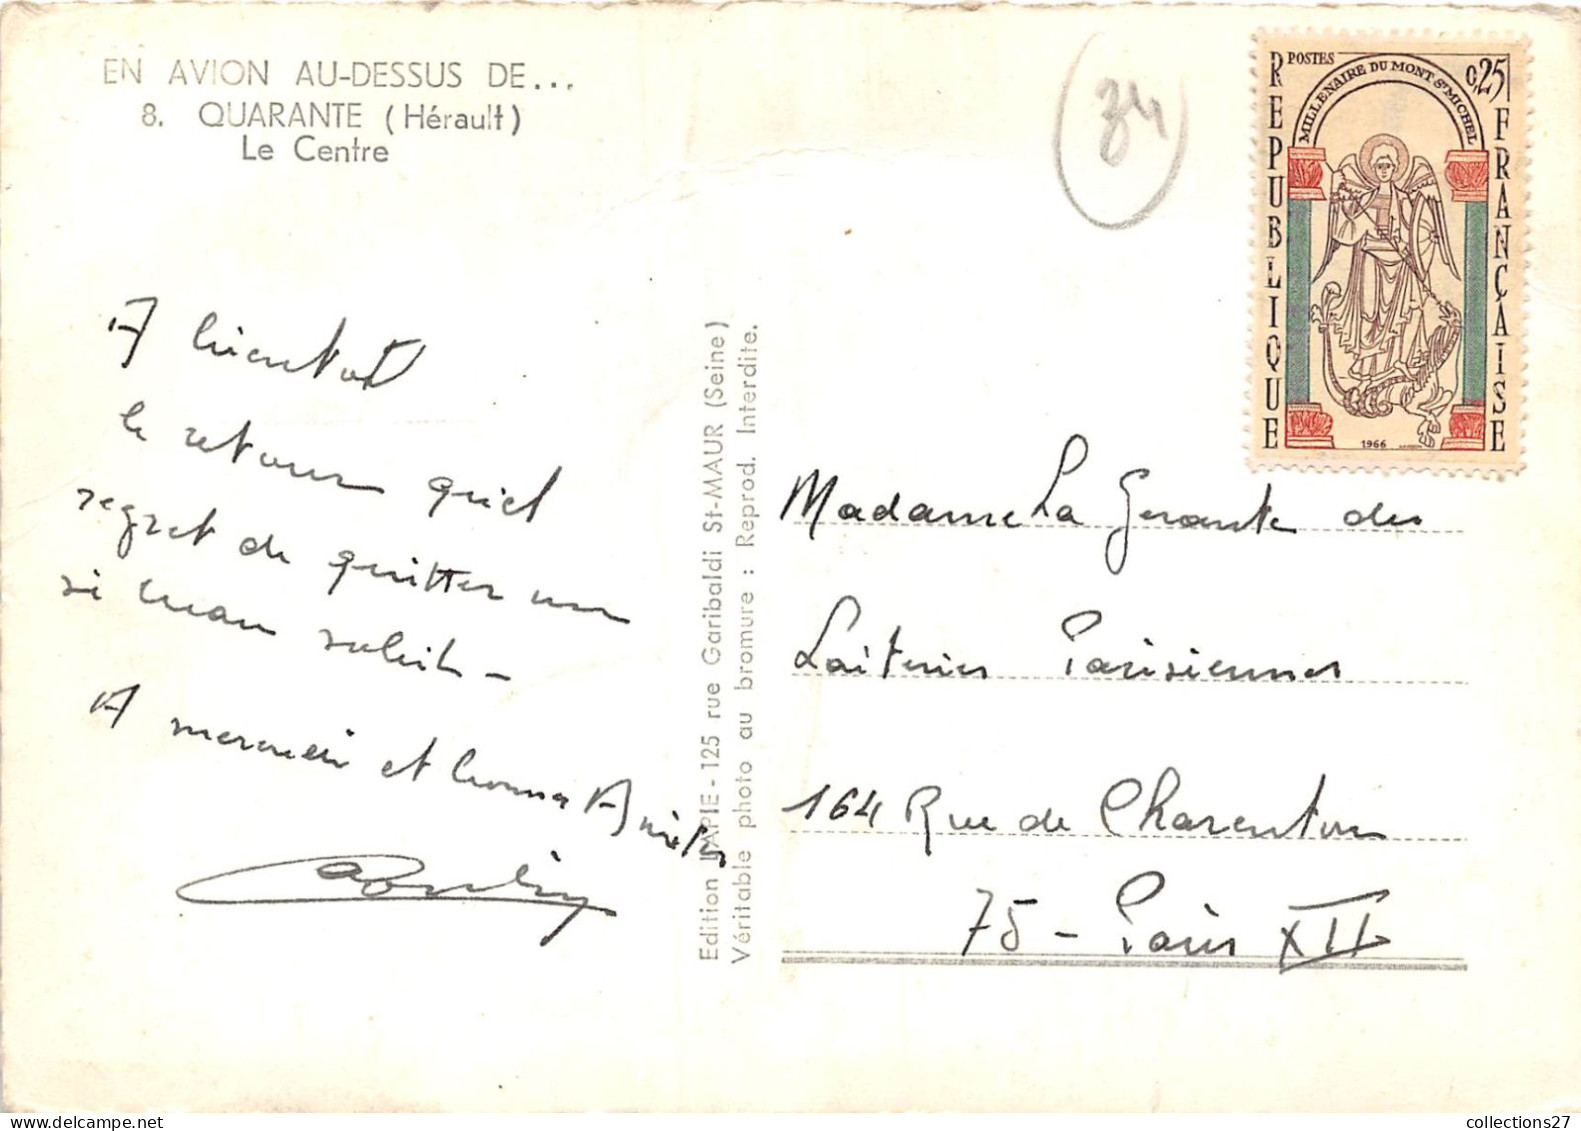 EN AVION AU-DESSUS DE...
8. QUARANTE (Hérault)
Le Centre
34
POSTES
0,25
MILLENAIRE DU MONT St MICHEL
REPUBLIQUE
FRANÇAISE
1966
A bientot
le retour quel
regret de quitter un
si beau soleil -
A mercredi et bonnes Amitiés
Edition LAPIE - 125 rue Garibaldi St-MAUR (Seine)
Véritable photo au bromure : Reprod. Interdite.
Madame La Gerante des
Laiteries Parisiennes
164 Rue de Charenton
75 - Paris XII
collections27